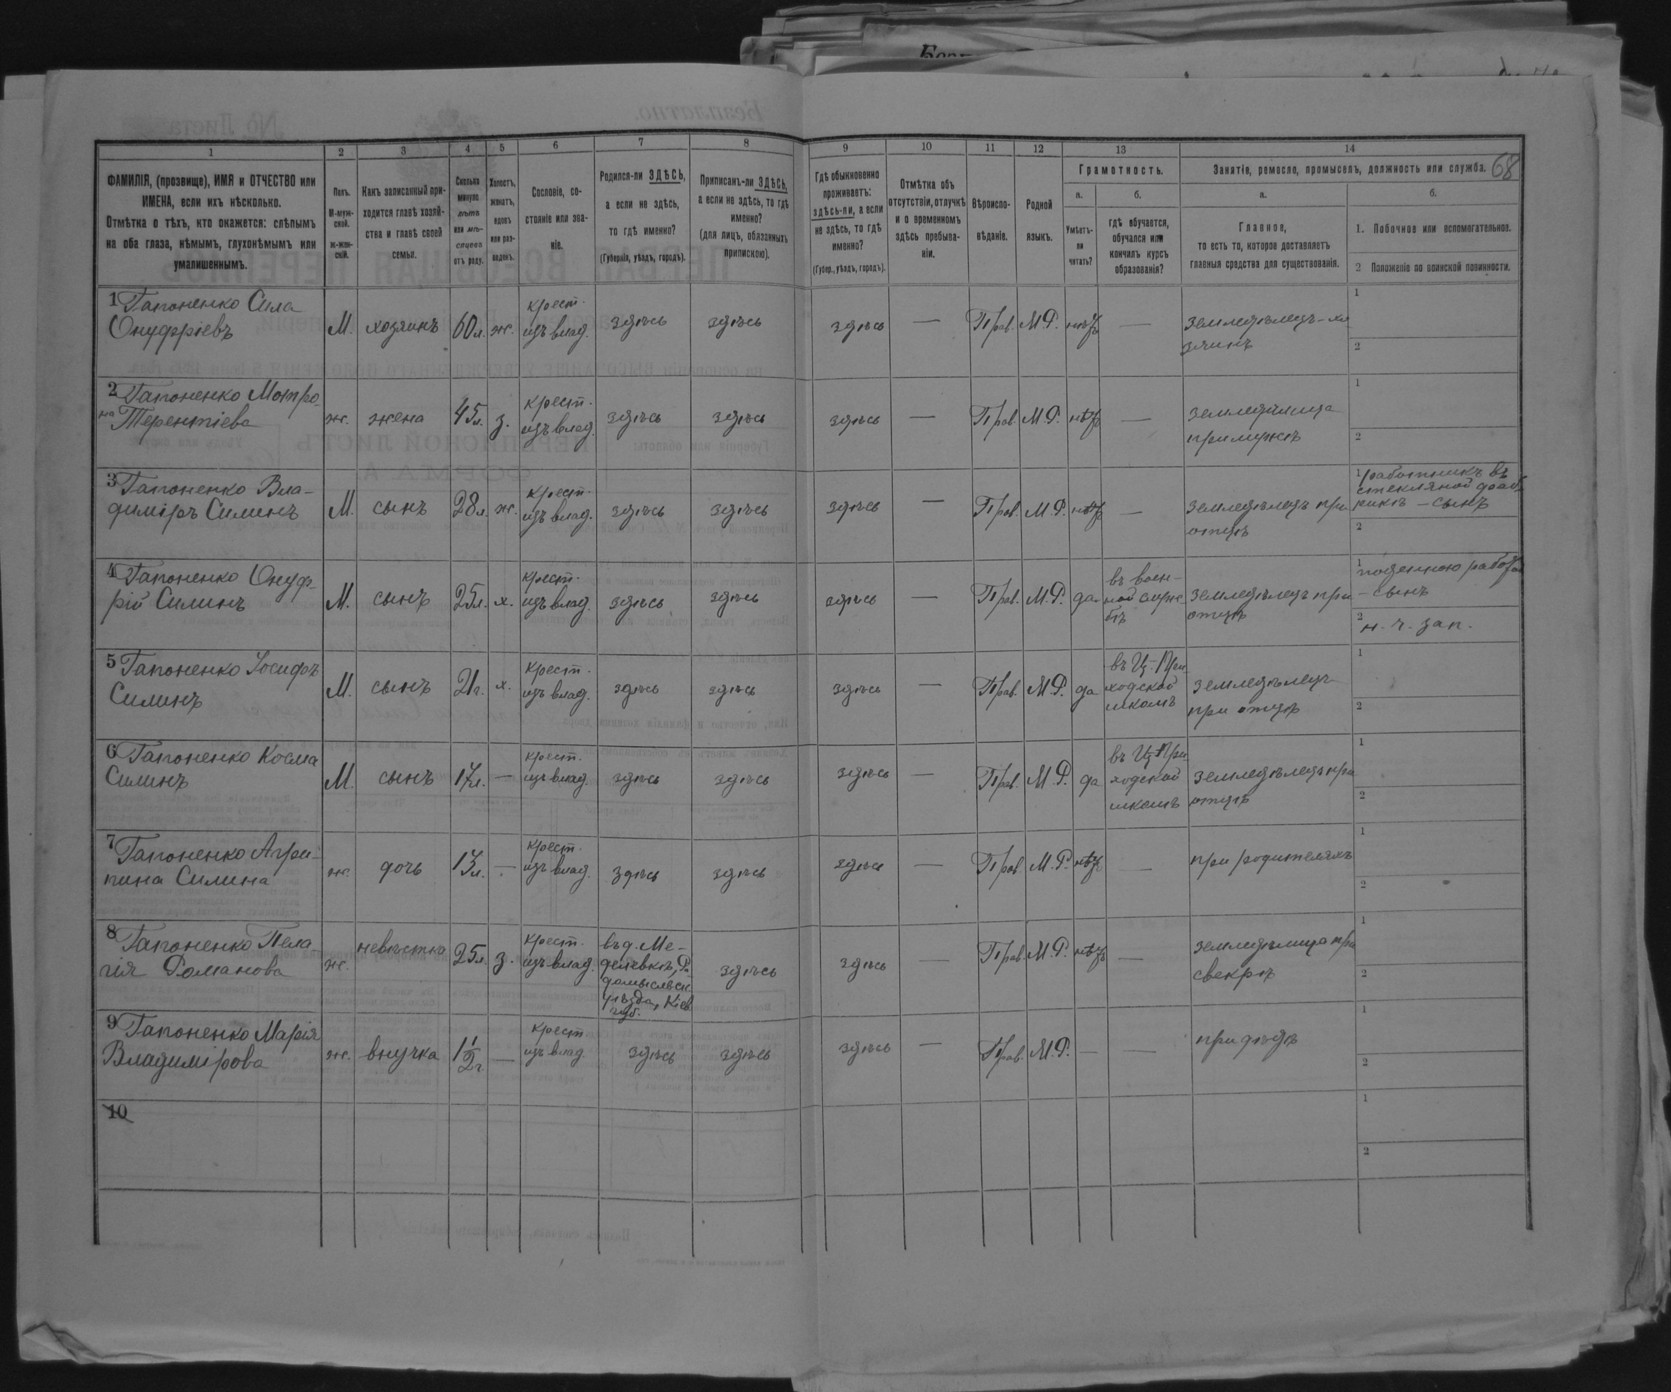 1 2 3 4 5 6 7 8 9 10 11 12 13 14
68
ФАМИЛІЯ, (прозвище), ИМЯ и ОТЧЕСТВО или
ИМЕНА, если ихъ нѣсколько.
Отмѣтка о тѣхъ, кто окажется: слѣпымъ
на оба глаза, нѣмымъ, глухонѣмымъ или
умалишеннымъ.
Полъ.
М-муж-
ской.
ж-жен-
скій.
Какъ записанный при-
ходится главѣ хозяй-
ства и главѣ своей
семьи.
Сколько
минуло
лѣтъ
или мѣ-
сяцевъ
отъ роду.
Холостъ,
женатъ,
вдовъ
или раз-
веденъ.
Сословіе, со-
стояніе или зва-
ніе.
Родился-ли ЗДѢСЬ,
а если не здѣсь,
то гдѣ именно?
(Губернія, уѣздъ, городъ).
Приписанъ-ли ЗДѢСЬ,
а если не здѣсь, то гдѣ
именно?
(для лицъ, обязанныхъ
припискою).
Гдѣ обыкновенно
проживаетъ:
здѣсь-ли, а если
не здѣсь, то гдѣ
именно?
(Губер., уѣздъ, городъ).
Отмѣтка объ
отсутствіи, отлучкѣ
и о временномъ
здѣсь пребыва-
ніи.
Вѣроиспо-
вѣданіе.
Родной
языкъ.
Грамотность.
а.
Умѣетъ-
ли
читать?
б.
гдѣ обучается,
обучался или
кончилъ курсъ
образованія?
Занятіе, ремесло, промыселъ, должность или служба.
а.
Главное,
то есть то, которое доставляетъ
главныя средства для существованія.
б.
1. Побочное или вспомогательное.
2 Положеніе по воинской повинности.
1 Гапоненко Сила
Онуфріевъ
М.
хозяинъ
60 л.
ж.
крест.
изъ влад.
здѣсь
здѣсь
здѣсь
—
Прав.
М.Р.
нѣтъ
—
земледѣлецъ-хо
зяинъ
1
2
2 Гапоненко Мотро
на Терентіева
ж.
жена
45 л.
з.
крест.
изъ влад.
здѣсь
здѣсь
здѣсь
—
Прав.
М.Р.
нѣтъ
—
при мужѣ
1
2
3 Гапоненко Вла-
диміръ Силинъ
М.
сынъ
28 л.
ж.
крест.
изъ влад.
здѣсь
здѣсь
здѣсь
—
Прав.
М.Р.
нѣтъ
—
земледѣлецъ при
отцѣ
1 работникъ въ
стекляной фаб
рикѣ – сынъ
2
4 Гапоненко Онуф-
рій Силинъ
М.
сынъ
25 л.
х.
крест.
изъ влад.
здѣсь
здѣсь
здѣсь
—
Прав.
М.Р.
да
въ воен-
ной служ-
бѣ
земледѣлецъ при
отцѣ
1
– сынъ
2 н. ч. зап.
5 Гапоненко Іосифъ
Силинъ
М.
сынъ
21 г.
х.
крест.
изъ влад.
здѣсь
здѣсь
здѣсь
—
Прав.
М.Р.
да
въ Ц-При
ходской
школѣ
земледѣлецъ
при отцѣ
1
2
6 Гапоненко Косма
Силинъ
М.
сынъ
17 л.
—
крест.
изъ влад.
здѣсь
здѣсь
здѣсь
—
Прав.
М.Р.
да
въ Ц-При
ходской
школѣ
земледѣлецъ при
отцѣ
1
2
7 Гапоненко Агри-
пина Силина
ж.
дочь
13 л.
—
крест.
изъ влад.
здѣсь
здѣсь
здѣсь
—
Прав.
М.Р.
нѣтъ
—
при родителяхъ
1
2
8 Гапоненко Пела-
гія Романова
ж.
невѣстка
25 л.
з.
крест.
изъ влад.
въ д. Ме-
делевкѣ, Ра
домысльск.
уѣзда, Кіев
губ.
здѣсь
здѣсь
—
Прав.
М.Р.
нѣтъ
—
земледѣлица при
свекрѣ
1
2
9 Гапоненко Марія
Владимірова
ж.
внучка
1 1/2 г.
—
крест
изъ влад.
здѣсь
здѣсь
здѣсь
—
Прав.
М.Р.
—
—
при дѣдѣ
1
2
10
1
2